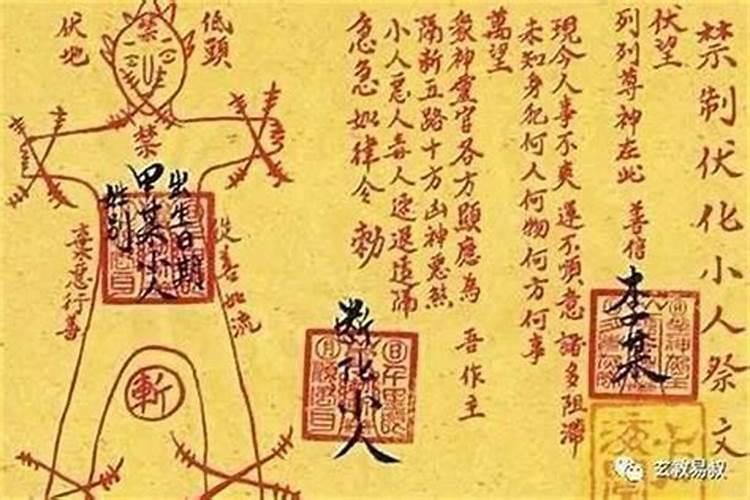 禁制伏化小人祭文
伏望
列列尊神在此 善信
李某
現今人事不爽運不順意諸多阻滯
未知身犯何人何物何方何事
萬望
眾神靈官各方顯應為 吾作主
隔斷五路十方凶神惡煞
小人惡人毒人速退遠隔
急急如律令 勅
斷化小人
低頭
伏地
禁
禁
出生日期
甲某小人
性别
從善如流
棄惡行善
斬
玄教易叔